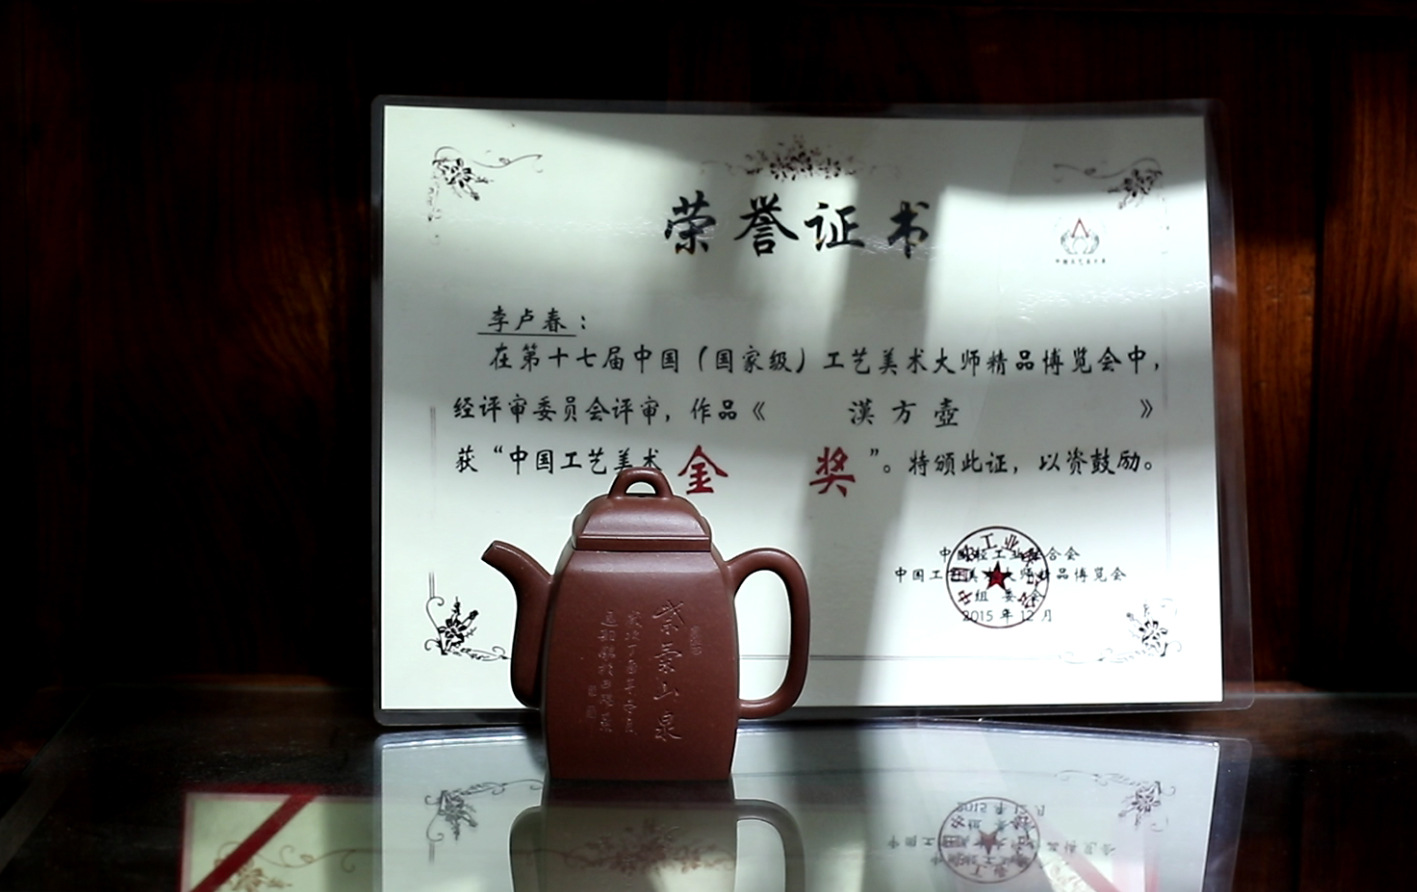 荣誉证书
李卢春：
在第十七届中国（国家级）工艺美术大师精品博览会中，
经评审委员会评审，作品《 漢方壶 》
获“中国工艺美术 金 奖 ”。特颁此证，以资鼓励。
中国轻工业联合会
中国工艺美术大师精品博览会
组委会
2015 年 12 月
紫氣山泉